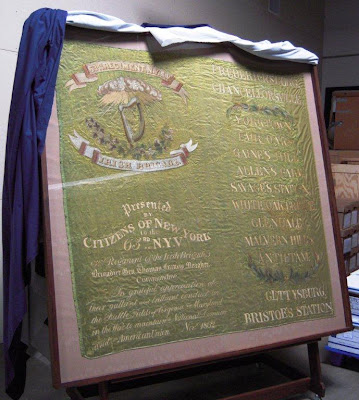 IRISH BRIGADE
Presented
BY
CITIZENS OF NEW YORK
to the
63RD N.Y.V
Regiment of the Irish Brigade
Brigadier Gen. Thomas Francis Meagher
Commanding
In grateful appreciation of
their gallant and brilliant conduct on
the Battle Fields of Virginia & Maryland
in the War to maintain the National
and American Union Nov. 1862
FREDERICKSBURG
CHANCELLORSVILLE
YORKTOWN
FAIR OAKS
GAINES HILL
ALLENS
SAVAGES STATION
WHITE OAK BRIDGE
GLENDALE
MALVERN HILL
ANTIETAM
GETTYSBURG,
BRISTOES STATION